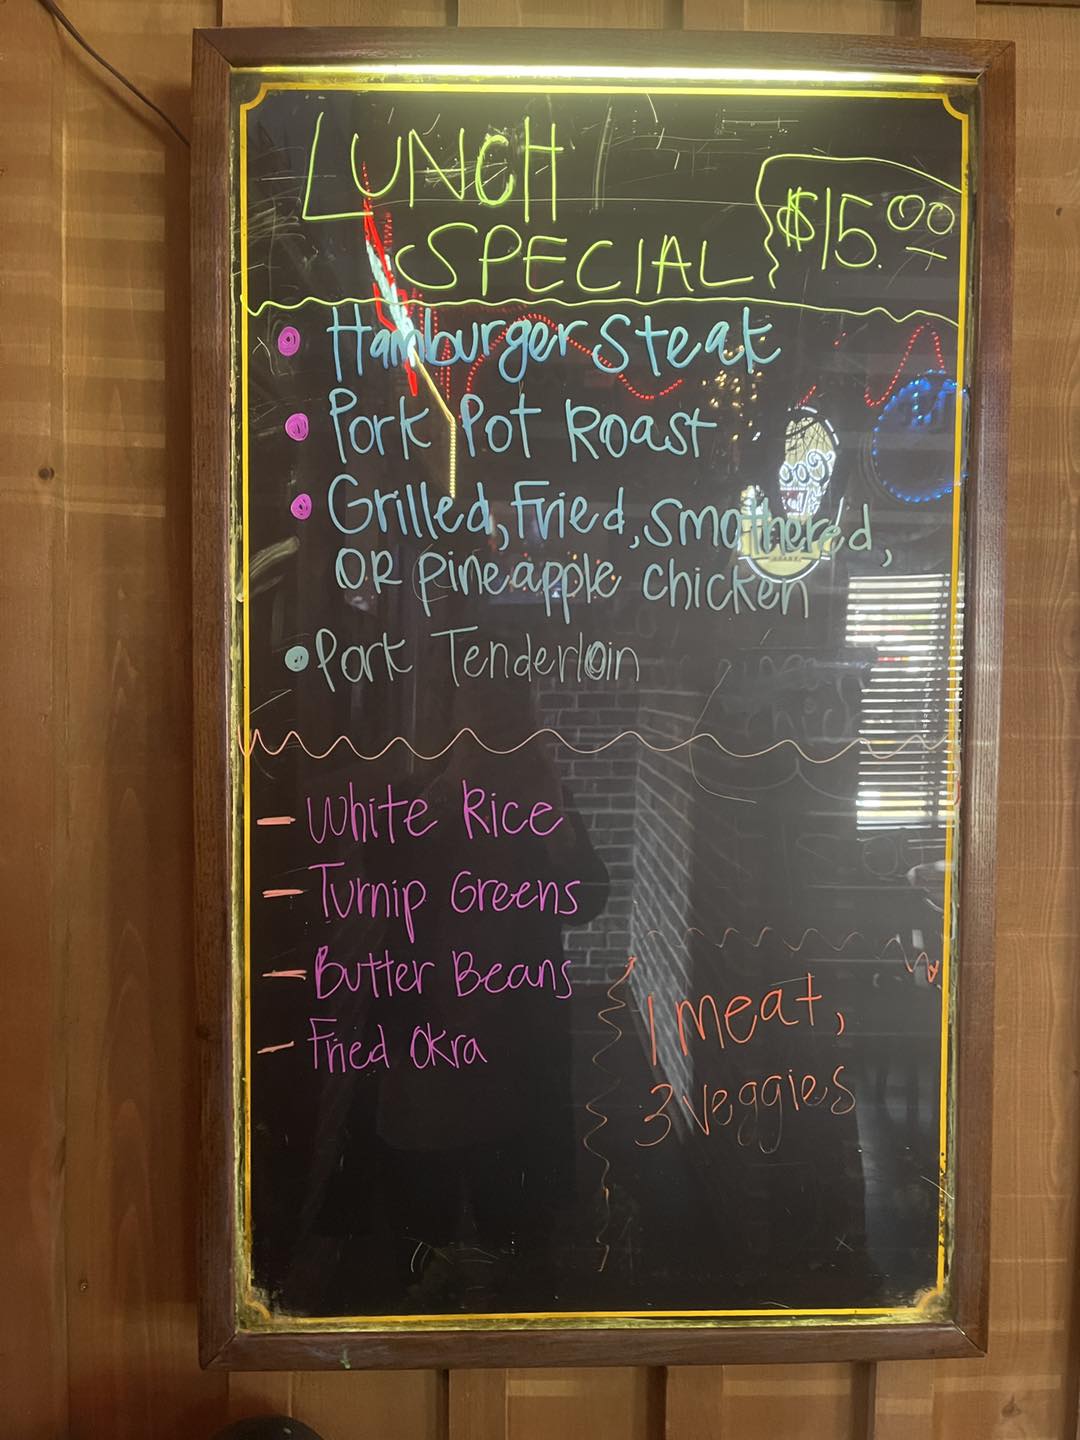 LUNCH
SPECIAL
$15.00
• Hamburger Steak
• Pork Pot Roast
• Grilled, Fried, Smothered,
OR pineapple chicken
• Pork Tenderloin
- White Rice
- Turnip Greens
- Butter Beans
- Fried Okra
1 meat,
3 veggies